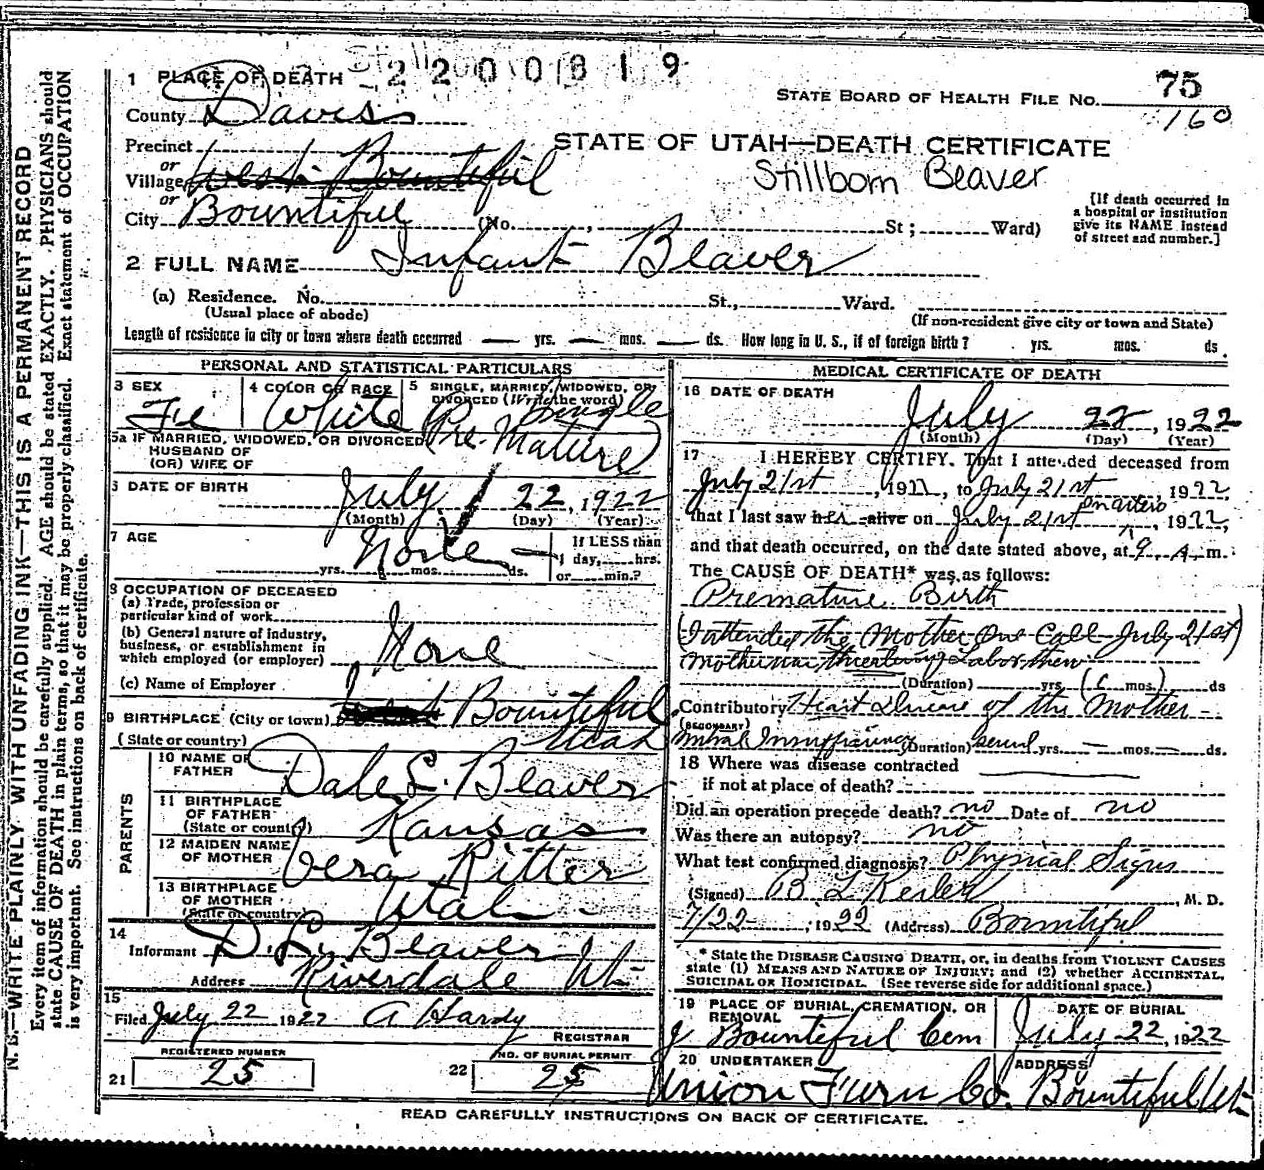 Stillborn 2200819
1 PLACE OF DEATH
STATE BOARD OF HEALTH FILE NO. 75
160
County Davis
Precinct
or
Village West Bountiful
or
City Bountiful (No. , St; Ward)
STATE OF UTAH—DEATH CERTIFICATE
Stillborn Beaver
[If death occurred in
a hospital or institution
give its NAME instead
of street and number.]
2 FULL NAME Infant Beaver
(a) Residence. No. St., Ward.
(Usual place of abode)
(If non-resident give city or town and State)
Length of residence in city or town where death occurred — yrs. — mos. — ds. How long in U. S., if of foreign birth? yrs. mos. ds.
PERSONAL AND STATISTICAL PARTICULARS
3 SEX
Fe
4 COLOR OR RACE
White
5 SINGLE, MARRIED, WIDOWED, OR
DIVORCED (Write the word)
Single
(Pre-Mature)
5a IF MARRIED, WIDOWED, OR DIVORCED
HUSBAND OF
(OR) WIFE OF
6 DATE OF BIRTH July 22, 1922
(Month) (Day) (Year)
7 AGE
None
yrs. mos. ds.
If LESS than
1 day, hrs.
or min.?
8 OCCUPATION OF DECEASED
(a) Trade, profession or
particular kind of work
(b) General nature of industry,
business, or establishment in
which employed (or employer) None
(c) Name of Employer
9 BIRTHPLACE (City or town) West Bountiful
(State or country) Utah
PARENTS
10 NAME OF
FATHER Dale L. Beaver
11 BIRTHPLACE
OF FATHER
(State or country) Kansas
12 MAIDEN NAME
OF MOTHER Vera Ritter
13 BIRTHPLACE
OF MOTHER
(State or country) Utah -
14
Informant D. L. Beaver
Address Riverdale Ut.
15
Filed July 22 1922 A Hardy
REGISTRAR
REGISTERED NUMBER
21 25
NO. OF BURIAL PERMIT
22 25
MEDICAL CERTIFICATE OF DEATH
16 DATE OF DEATH
July 22, 1922
(Month) (Day) (Year)
17 I HEREBY CERTIFY, That I attended deceased from
July 21st, 1922, to July 21st, 1922,
that I last saw her alive on July 21st, 1922,
and that death occurred, on the date stated above, at 9 A. m.
The CAUSE OF DEATH* was as follows:
Premature Birth
(I attended the Mother One Call July 21st)
Mother was threatening Labor then
(Duration) yrs. (6 mos.) ds
Contributory Heart Disease of the Mother -
(SECONDARY)
Mitral Insufficiency (Duration) several yrs. — mos. — ds.
18 Where was disease contracted
if not at place of death?
Did an operation precede death? no Date of no
Was there an autopsy? no
What test confirmed diagnosis? Physical Signs
(Signed) B L Kesler, M. D.
7/22, 1922 (Address) Bountiful
* State the DISEASE CAUSING DEATH, or, in deaths from VIOLENT CAUSES
state (1) MEANS AND NATURE OF INJURY; and (2) whether ACCIDENTAL,
SUICIDAL OR HOMICIDAL. (See reverse side for additional space.)
19 PLACE OF BURIAL, CREMATION, OR
REMOVAL
Bountiful Cem
DATE OF BURIAL
July 22, 1922
20 UNDERTAKER
Union Furn Co.
ADDRESS
Bountiful Ut
READ CAREFULLY INSTRUCTIONS ON BACK OF CERTIFICATE.
N. B.—WRITE PLAINLY, WITH UNFADING INK—THIS IS A PERMANENT RECORD
Every item of information should be carefully supplied. AGE should be stated EXACTLY. PHYSICIANS should
state CAUSE OF DEATH in plain terms, so that it may be properly classified. Exact statement of OCCUPATION
is very important. See instructions on back of certificate.